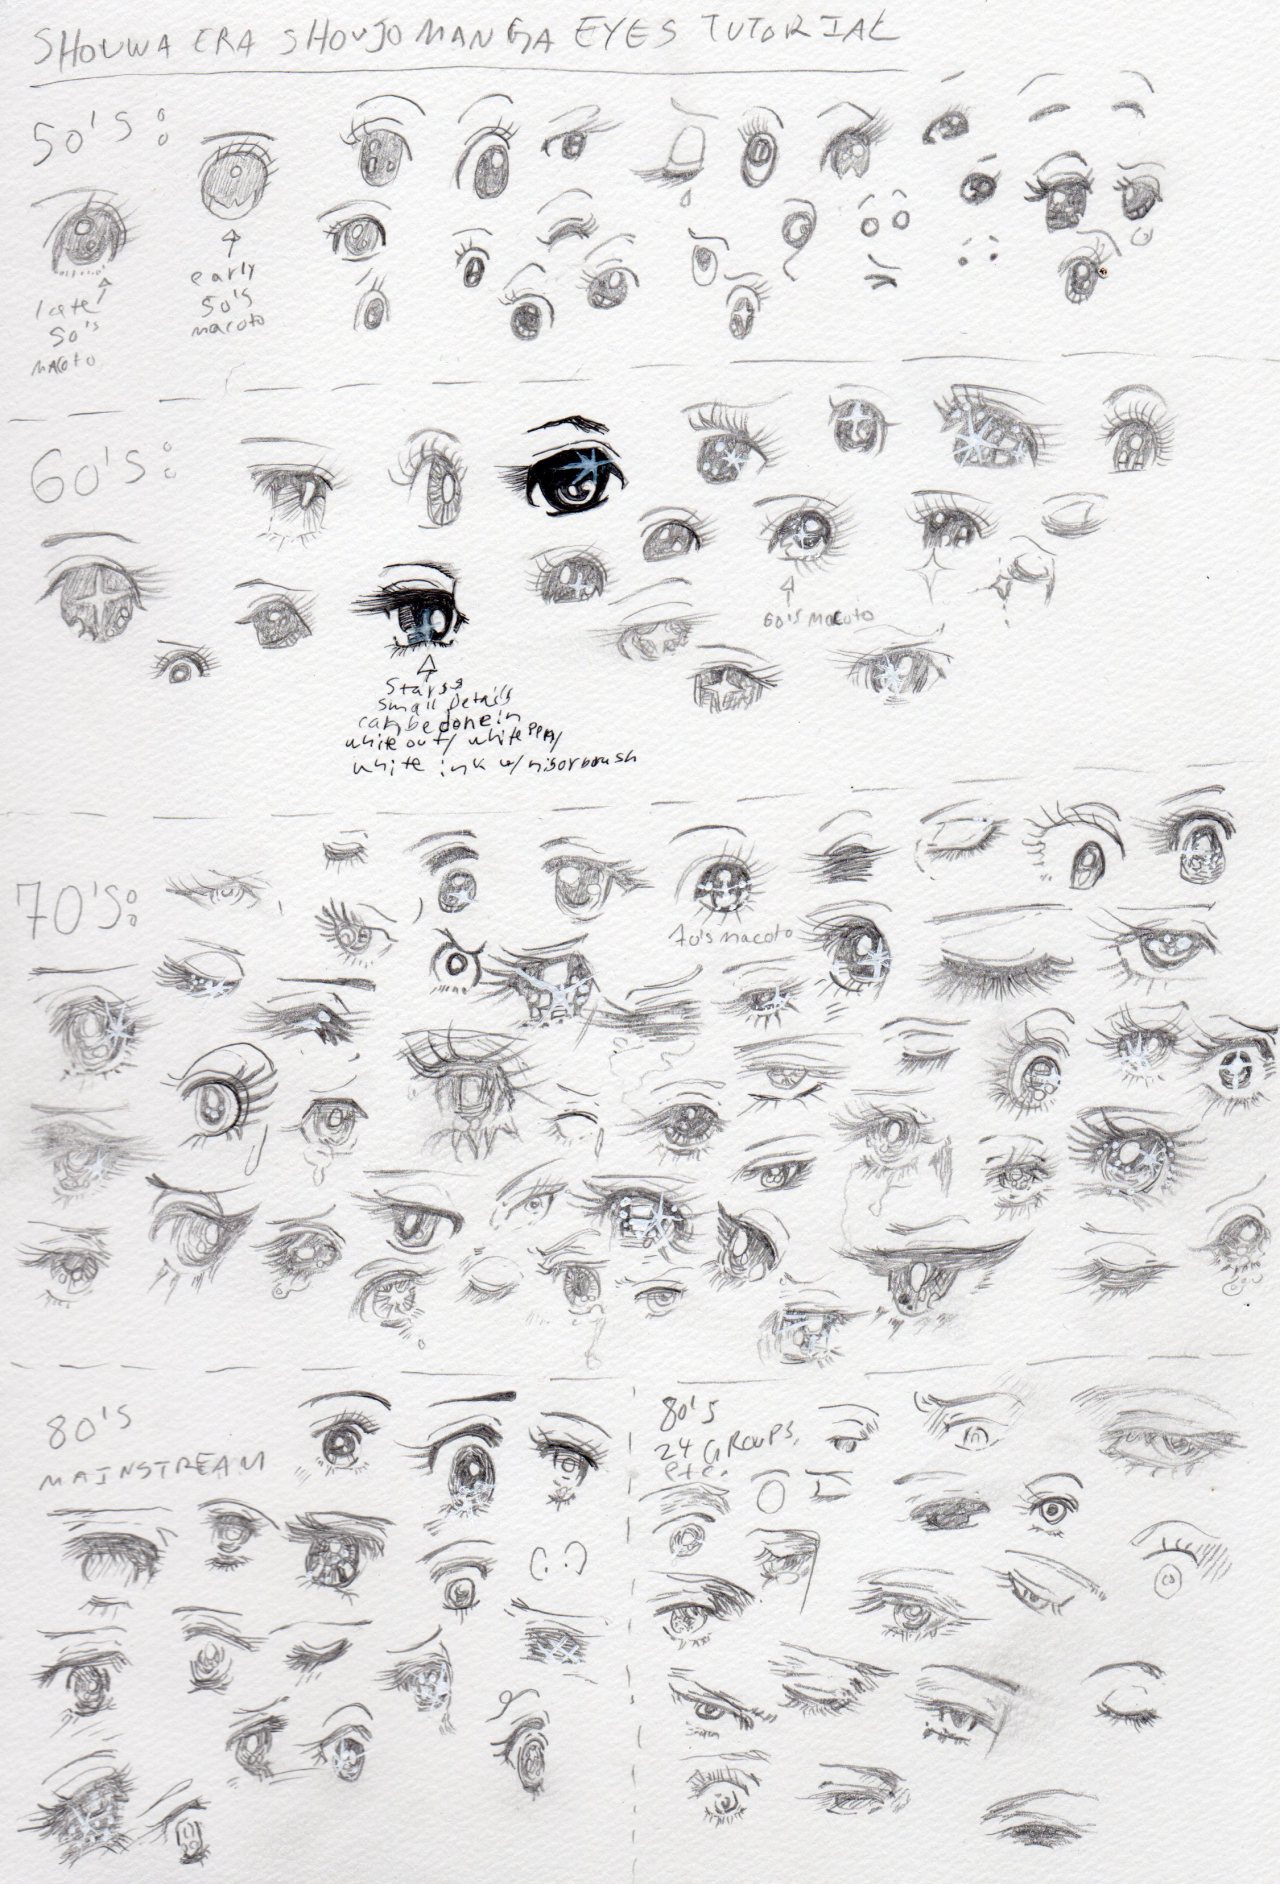 SHOUWA ERA SHOUJO MANGA EYES TUTORIAL
50'S:
late
50's
macoto
early
50's
macoto
60'S:
60's macoto
Stars &
small details
can be done in
white out/ white pen/
white ink w/
70'S:
70's macoto
80'S
MAINSTREAM
80's
24 GROUPS,
etc.